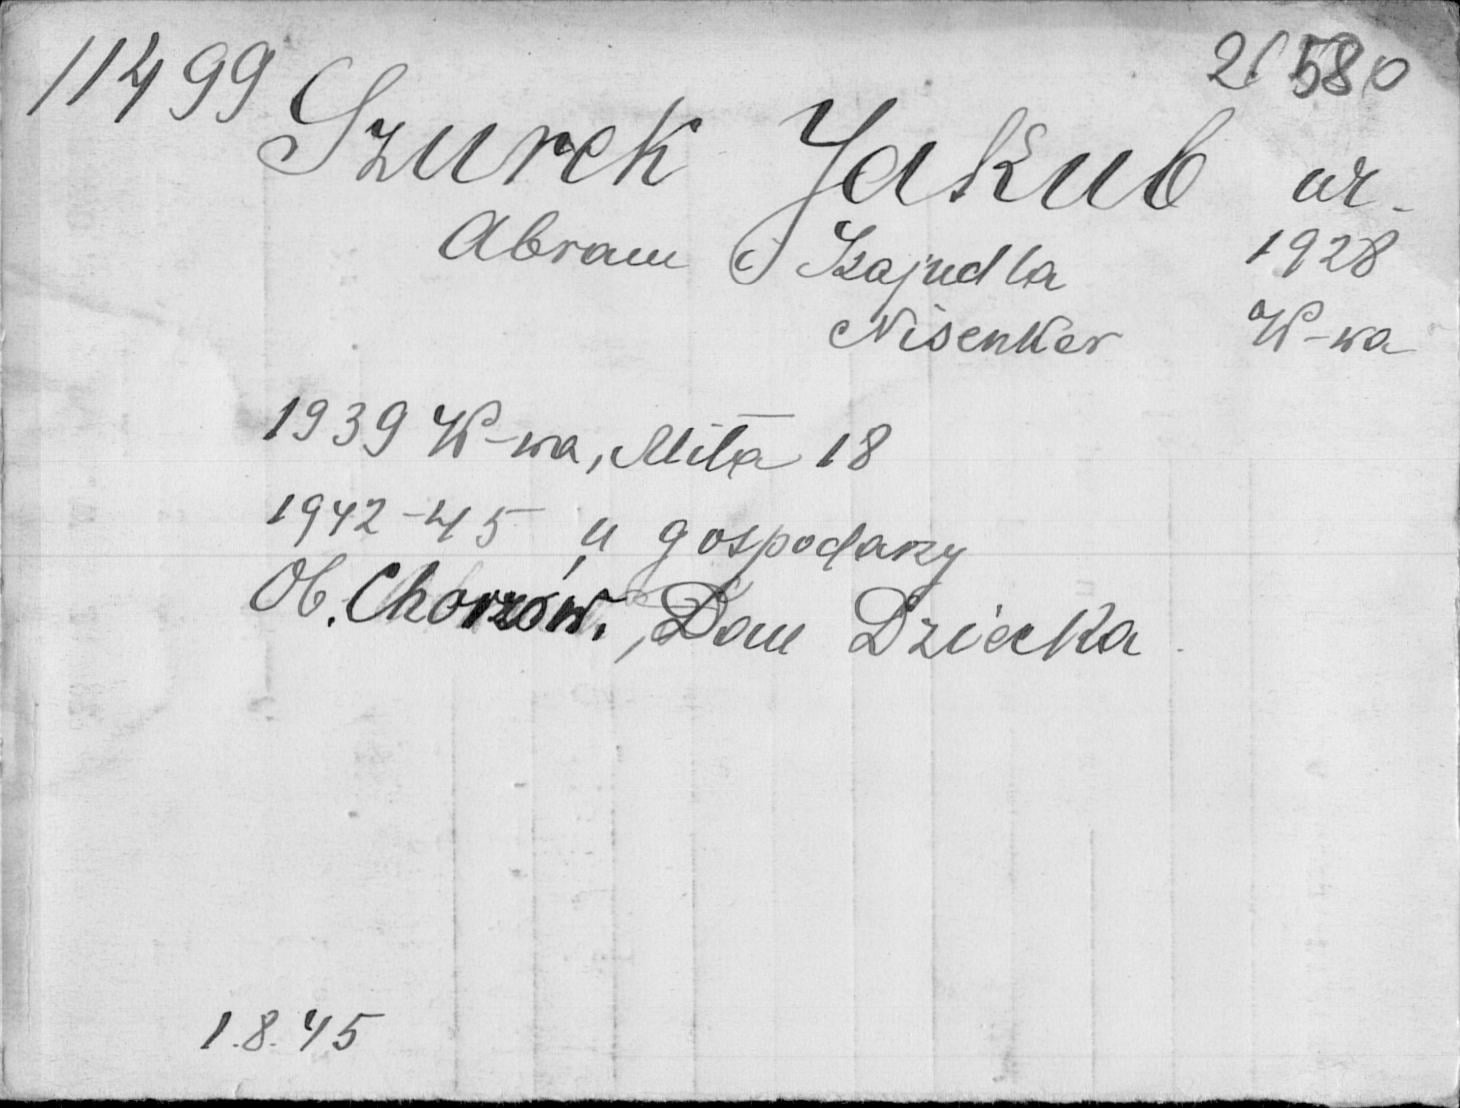 11499
Szurek Jakub ur.
Abram i Szajndla 1928
Nisenker W-wa
1939 W-wa, Miła 18
1942-45 u gospodarzy
Ob. Chorzów, Dom Dziecka
1.8.45